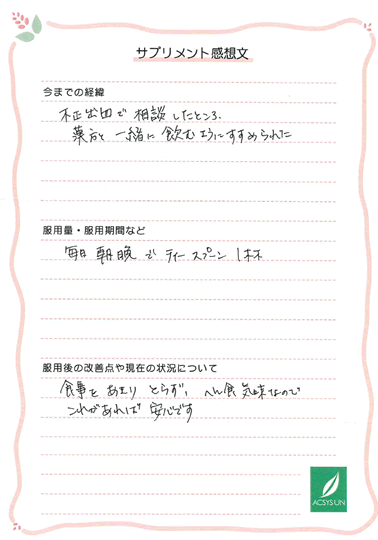 サプリメント感想文
今までの経緯
不正出血で相談したところ、
薬と一緒に飲むようにすすめられた
服用量・服用期間など
毎日朝晩でティースプーン1杯
服用後の改善点や現在の状況について
食事をあまりとらず、へん食気味なので
これがあれば安心です
ACSYSUN